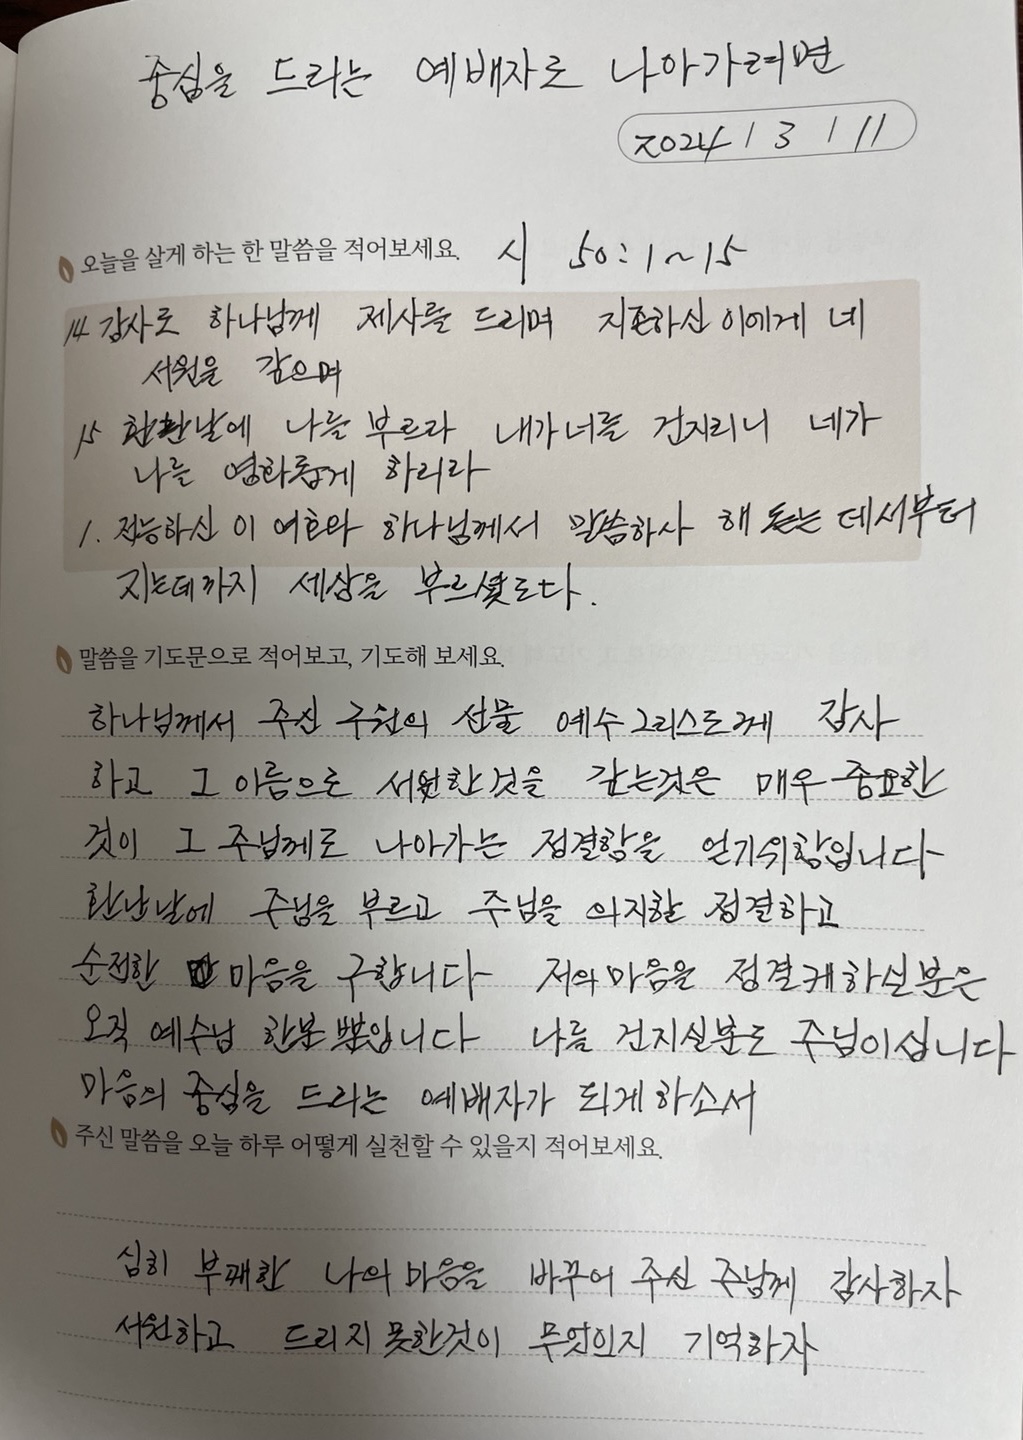 중심을 드리는 예배자로 나아가려면
2024 / 3 / 11
오늘을 살게 하는 한 말씀을 적어보세요. 시 50:1~15
14 감사로 하나님께 제사를 드리며 지존하신 이에게 네
서원을 갚으며
15 환난날에 나를 부르라 내가 너를 건지리니 네가
나를 영화롭게 하리라
1. 전능하신 이 여호와 하나님께서 말씀하사 해 돋는 데서부터
지는데까지 세상을 부르셨도다.
말씀을 기도문으로 적어보고, 기도해 보세요.
하나님께서 주신 구원의 선물 예수그리스도께 감사
하고 그 이름으로 서원한것을 갚는것은 매우 중요한
것이 그 주님께로 나아가는 정결함을 얻기위함입니다
환난날에 주님을 부르고 주님을 의지할 정결하고
순전한 마음을 구합니다 저의 마음을 정결케하실분은
오직 예수님 한분 뿐입니다 나를 건지실분도 주님이십니다
마음의 중심을 드리는 예배자가 되게 하소서
주신 말씀을 오늘 하루 어떻게 실천할 수 있을지 적어보세요.
심히 부패한 나의 마음을 바꾸어 주신 주님께 감사하자
서원하고 드리지 못한것이 무엇인지 기억하자